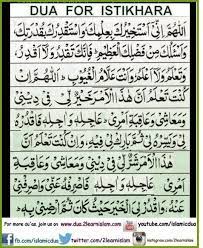 DUA FOR ISTIKHARA
اَللّٰهُمَّ اِنِّیْ اَسْتَخِیْرُكَ بِعِلْمِكَ وَاَسْتَقْدِرُكَ بِقُدْرَتِكَ
وَاَسْئَلُكَ مِنْ فَضْلِكَ الْعَظِیْمِ فَاِنَّكَ تَقْدِرُ وَلَا اَقْدِرُ
وَتَعْلَمُ وَلَا اَعْلَمُ وَاَنْتَ عَلَّامُ الْغُیُوْبِ اَللّٰهُمَّ اِنْ
كُنْتَ تَعْلَمُ اَنَّ هٰذَا الْاَمْرَ خَیْرٌ لِّیْ فِیْ دِیْنِیْ
وَمَعَاشِیْ وَعَاقِبَةِ اَمْرِیْ
فِیْهِ
كُنْتَ تَعْلَمُ اَنَّ هٰذَا الْاَمْرَ شَرٌّ لِّیْ فِیْ دِیْنِیْ وَمَعَاشِیْ
وَعَاقِبَةِ اَمْرِیْ فَاصْرِفْهُ عَنِّیْ وَاصْرِفْنِیْ
عَنْهُ وَاقْدِرْ لِیَ الْخَیْرَ حَیْثُ كَانَ ثُمَّ اَرْضِنِیْ بِهٖ
For more du'as, join us on www.dua.2learnislam.com youtube.com/islamicdua
f fb.com/islamicdua twitter.com/2learnislam